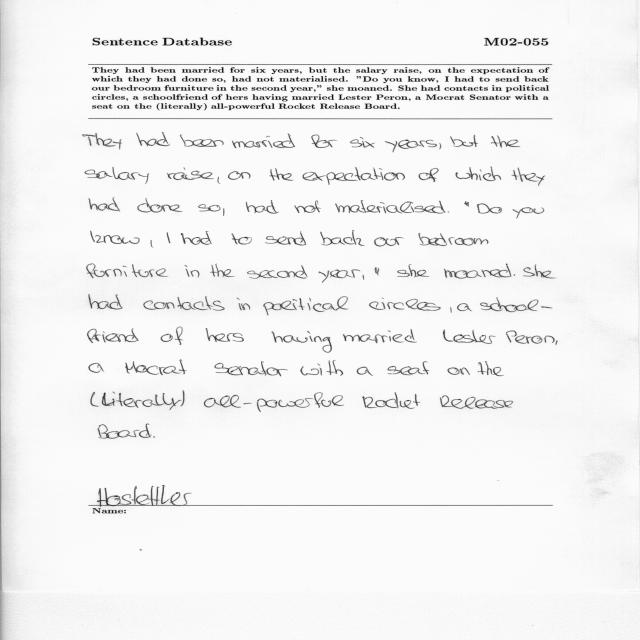 Sentence Database M02-055
They had been married for six years, but the salary raise, on the expectation of
which they had done so, had not materialised. "Do you know, I had to send back
our bedroom furniture in the second year," she moaned. She had contacts in political
circles, a schoolfriend of hers having married Lester Peron, a Mocrat Senator with a
seat on the (literally) all-powerful Rocket Release Board.
They had been married for six years, but the
salary raise, on the expectation of which they
had done so, had not materialised. "Do you
know, I had to send back our bedroom
furniture in the second year," she moaned. She
had contacts in political circles, a school-
friend of hers having married Lester Peron,
a Mocrat Senator with a seat on the
(Literally) all-powerful Rocket Release
Board.
Hostettler
Name: